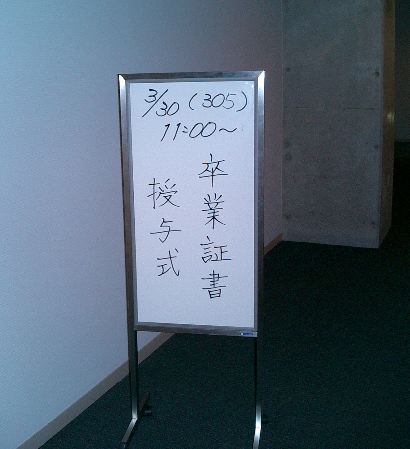 3/30 (305)
11:00～
卒業証書
授与式